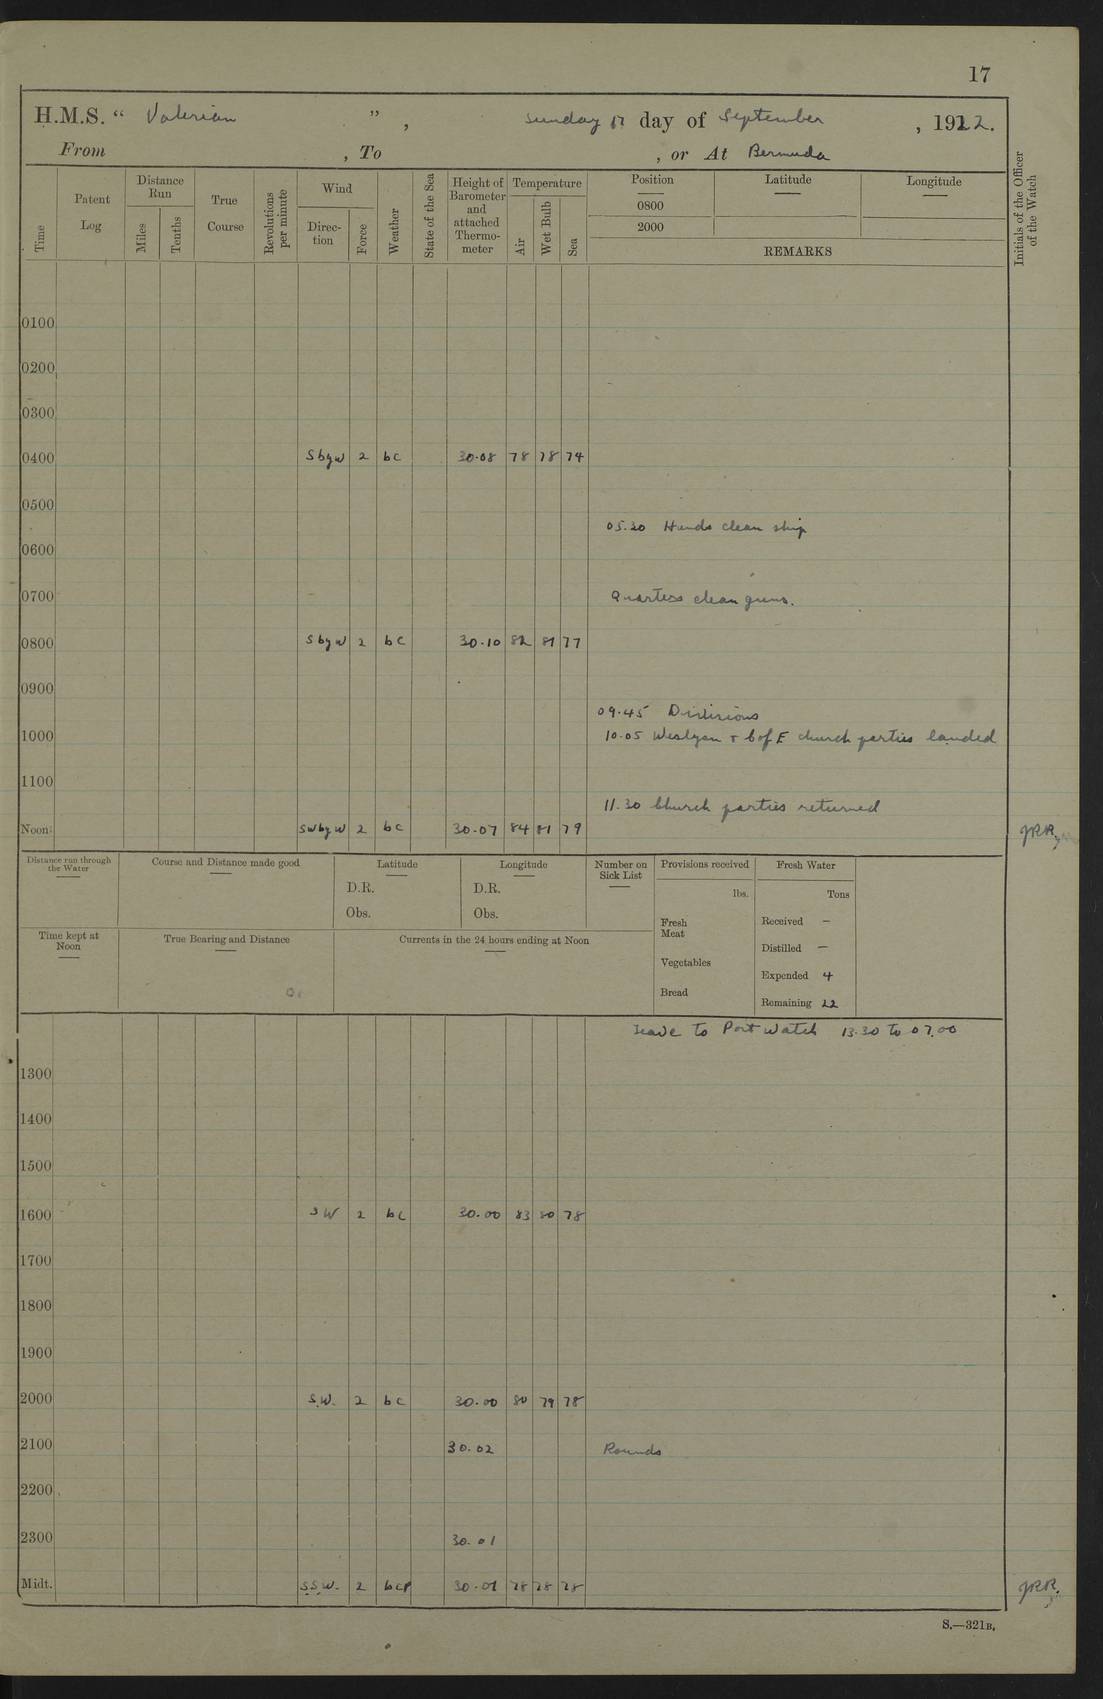 17
H.M.S. “ Valerian ” , Sunday 17 day of September , 1922.
From , To , or At Bermuda
Time
Patent Log
Distance Run
Miles
Tenths
True Course
Revolutions per minute
Wind
Direc-tion
Force
Weather
State of the Sea
Height of Barometer and attached Thermo-meter
Temperature
Air
Wet Bulb
Sea
Position
0800
2000
Latitude
Longitude
REMARKS
Initials of the Officer of the Watch
0100
0200
0300
0400 S by W 2 bc 30.08 78 78 74
0500
05.30 Hands clean ship
0600
0700 Quarters clean guns.
0800 S by W 2 bc 30.10 82 81 77
0900
09.45 Divisions
1000 10.05 Weslyan + C of E church parties landed
1100
11.30 Church parties returned
Noon SW by W 2 bc 30.07 84 81 79 JRR
Distance run through the Water
Course and Distance made good
Latitude
D.R.
Obs.
Longitude
D.R.
Obs.
Number on Sick List
Provisions received
lbs.
Fresh Meat
Vegetables
Bread
Fresh Water
Tons
Received –
Distilled –
Expended 4
Remaining 22
Time kept at Noon
True Bearing and Distance
Currents in the 24 hours ending at Noon
Leave to Port Watch 13.30 to 07.00
1300
1400
1500
1600 SW 2 bc 30.00 83 80 78
1700
1800
1900
2000 S.W. 2 bc 30.00 80 79 78
2100 30.02 Rounds
2200
2300 30.01
Midt. S.S.W. 2 bcp 30.01 78 78 78 JRR.
S.—321B.